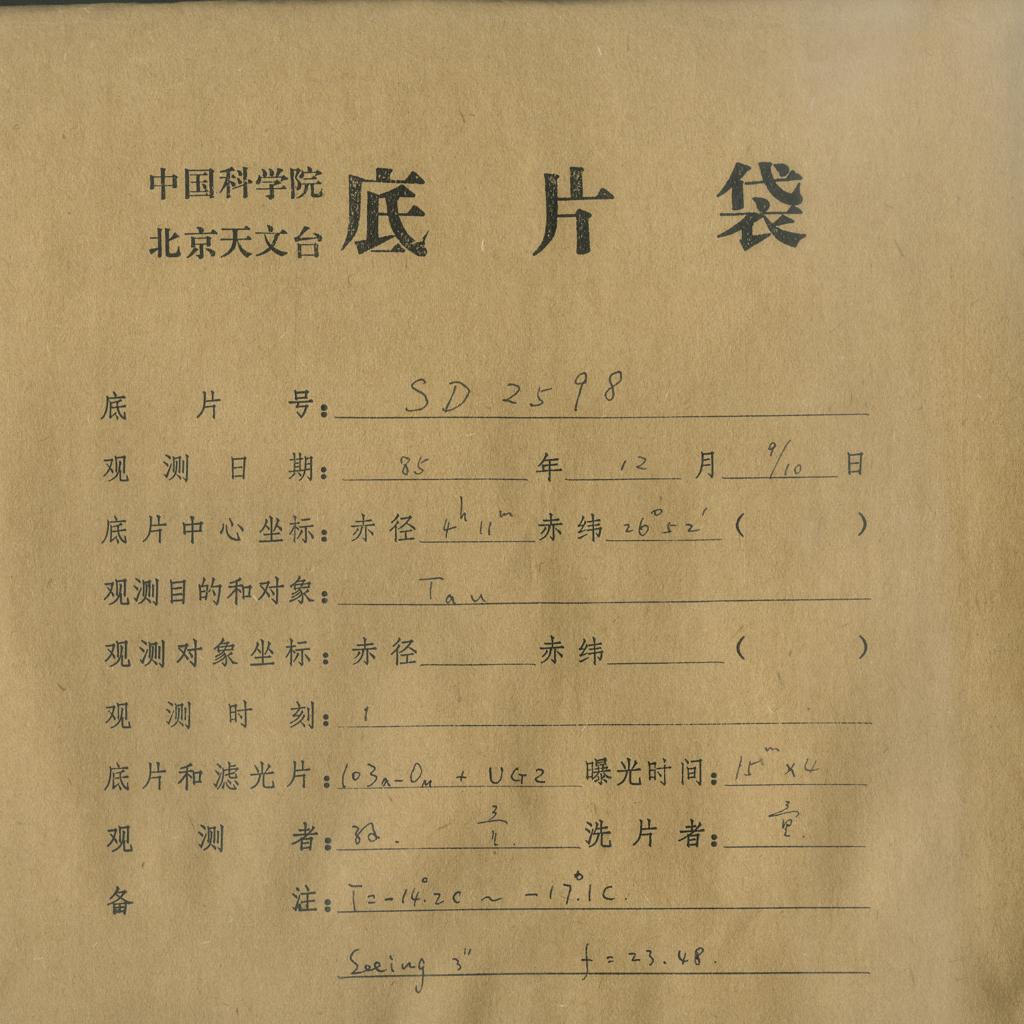 中国科学院
北京天文台
底片袋
底片号：SD 2598
观测日期：85年12月9/10日
底片中心坐标：赤径4h11m赤纬26°52′（ ）
观测目的和对象：Tau
观测对象坐标：赤径 赤纬 （ ）
观测时刻：1
底片和滤光片：103a-OM + UG2 曝光时间：15m×4
观测者： 洗片者：
备注：T=-14°.2C ~ -17°.1C.
Seeing 3″ f=23.48.